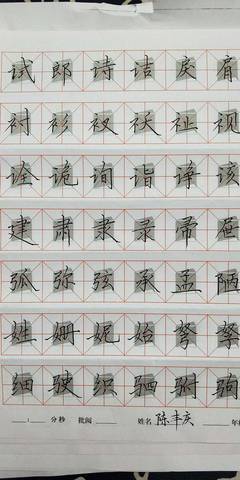 试郎诗诘戾肩
衬衫衩袄祉视
诠诡询诣诤该
建肃隶录帚屉
弧弥弦承孟陋
姓姗妮始弩孥
细驶织驷驸驹
分秒 批阅 姓名 陈丰庆 年